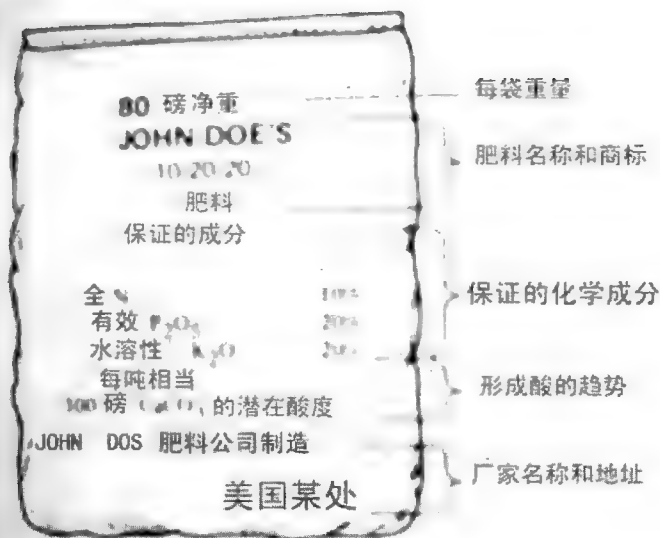 80 磅净重
JOHN DOE'S
10 20 20
肥料
保证的成分
全 10%
有效 P₂O₅ 20%
水溶性 K₂O 20%
每吨相当
磅 CaCO₃ 的潜在酸度
JOHN DOS 肥料公司制造
美国某处
每袋重量
肥料名称和商标
保证的化学成分
形成酸的趋势
厂家名称和地址